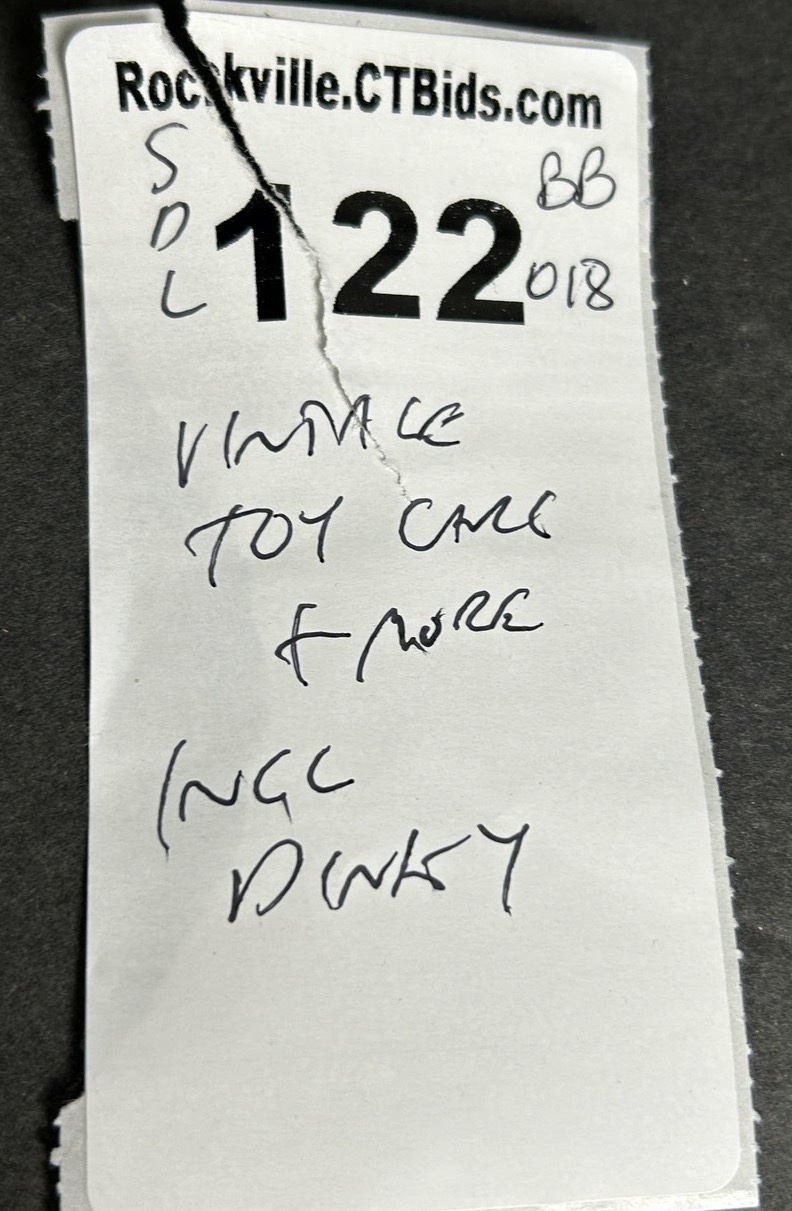 Rockville.CTBids.com
SDL 122 BB 018
VINTAGE
TOY CARS
+ MORE
INCL
DINKY